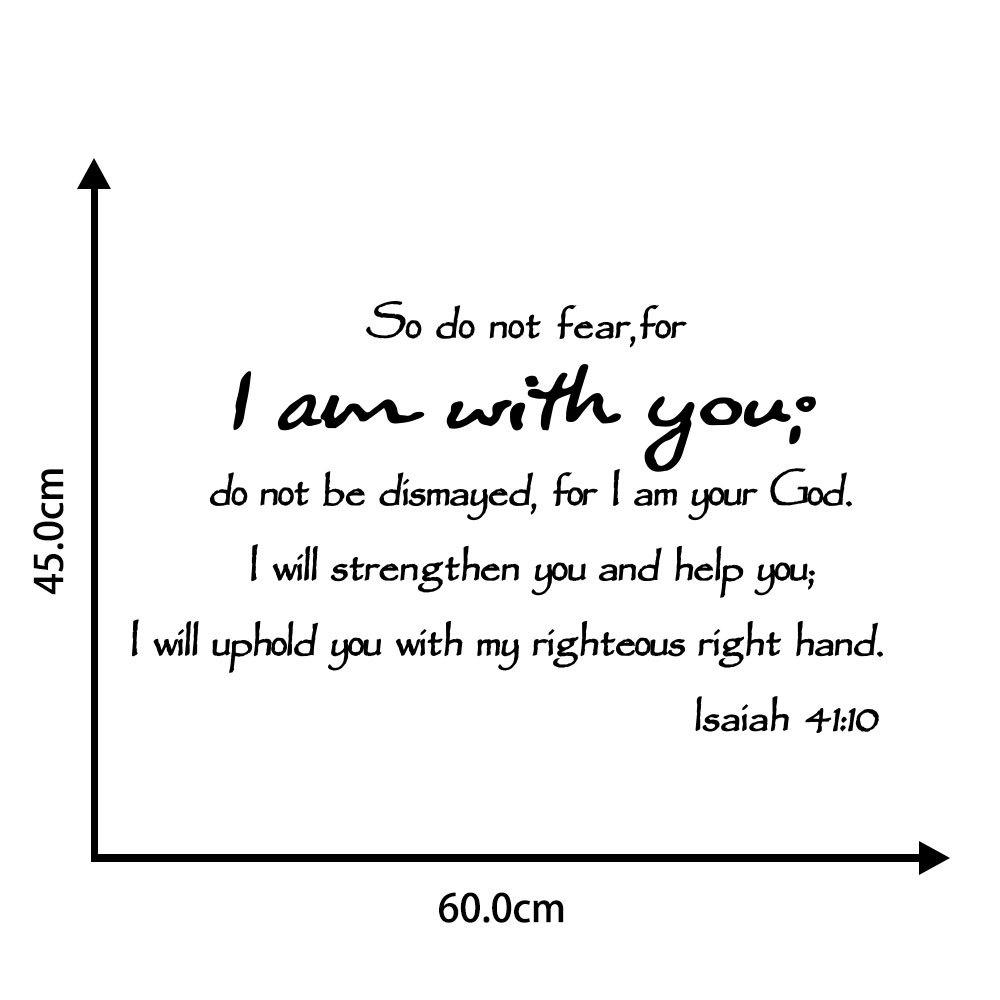 So do not fear,for
I am with you;
do not be dismayed, for I am your God.
I will strengthen you and help you;
I will uphold you with my righteous right hand.
Isaiah 41:10
45.0cm
60.0cm